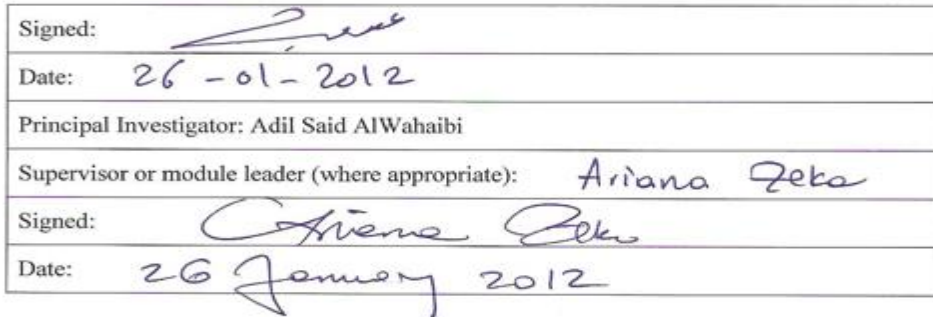 Signed:
Date: 26 - 01 - 2012
Principal Investigator: Adil Said AlWahaibi
Supervisor or module leader (where appropriate): Ariana Zeka
Signed: Ariana Zeka
Date: 26 January 2012